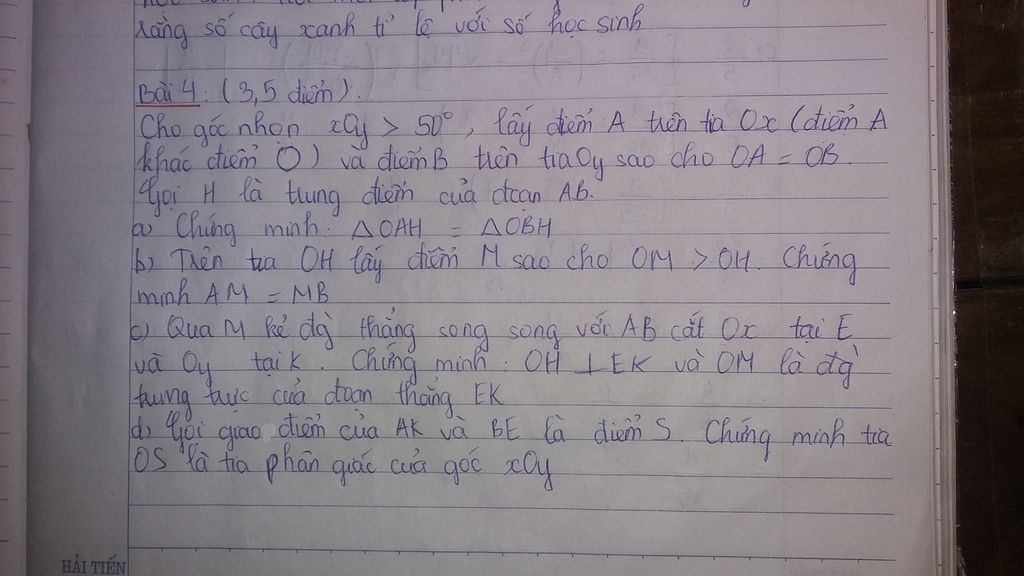 rằng số cây xanh tỉ lệ với số học sinh
Bài 4: (3,5 điểm).
Cho góc nhọn xOy > 50°, lấy điểm A trên tia Ox (điểm A
khác điểm O) và điểm B trên tia Oy sao cho OA = OB.
Gọi H là trung điểm của đoạn AB.
a) Chứng minh: △OAH = △OBH
b) Trên tia OH lấy điểm M sao cho OM > OH. Chứng
minh AM = MB
c) Qua M kẻ đg̀ thẳng song song với AB cắt Ox tại E
và Oy tại K. Chứng minh: OH ⊥ EK và OM là đg̀
trung trực của đoạn thẳng EK
d) Gọi giao điểm của AK và BE là điểm S. Chứng minh tia
OS là tia phân giác của góc xOy
HẢI TIẾN